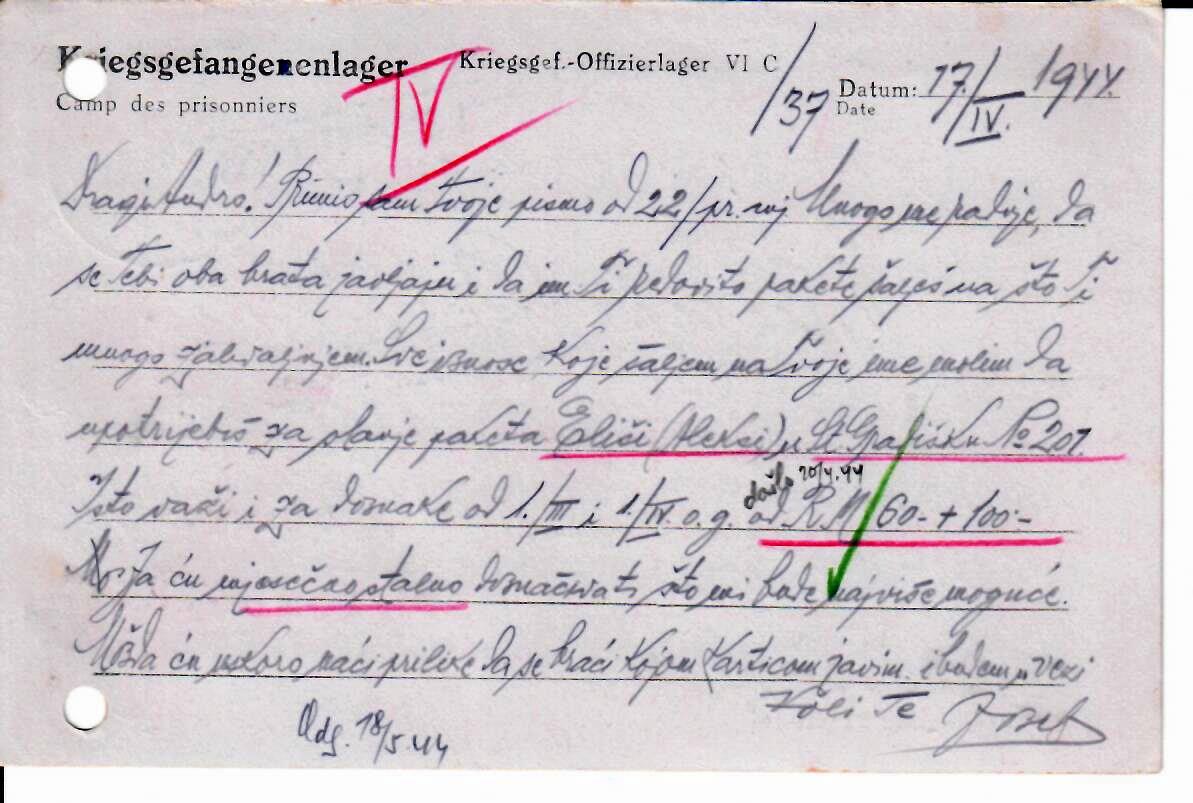 Kriegsgefangenenlager Kriegsgef.-Offizierlager VI C /37 Datum: 17./IV. 1944.
Camp des prisonniers Date
IV
Dragi Andro! Primio sam Tvoje pismo od 22/pr. mj Mnogo me raduje, da
se Tebi oba brata javljaju i da im Ti redovito pakete šalješ na što Ti
mnogo zahvaljujem. Sve iznose koje šaljem na Tvoje ime molim da
upotrijebiš za slanje paketa Eliši (Aleksi) u St. Gradišku No 207.
došlo 20/4.44
Isto važi i za doznake od 1./III i 1./IV. o. g. od RM 60.- + 100.-
Ja ću mjesečno stalno doznačivati što mi bude najviše moguće.
Možda ću uskoro naći prilike da se braći kojom karticom javim i budem u vezi
Voli Te Josef
Odg. 18/5.44